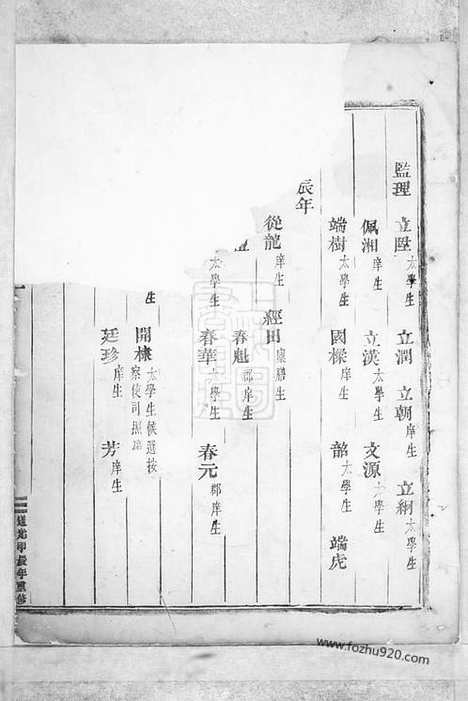 監理 立陞太學生 立潤 立朝庠生 立綱太學生
佩湘庠生 立漢太學生 文源太學生
端樹太學生 國樑庠生 韶太學生 端虎
辰年
從龍庠生 經田廩膳生
春魁郡庠生
太學生 春華太學生 春元郡庠生
生 開棣太學生候選按察使司照磨
廷珍庠生 芳庠生
道光甲辰年重修
www.fozhu920.com